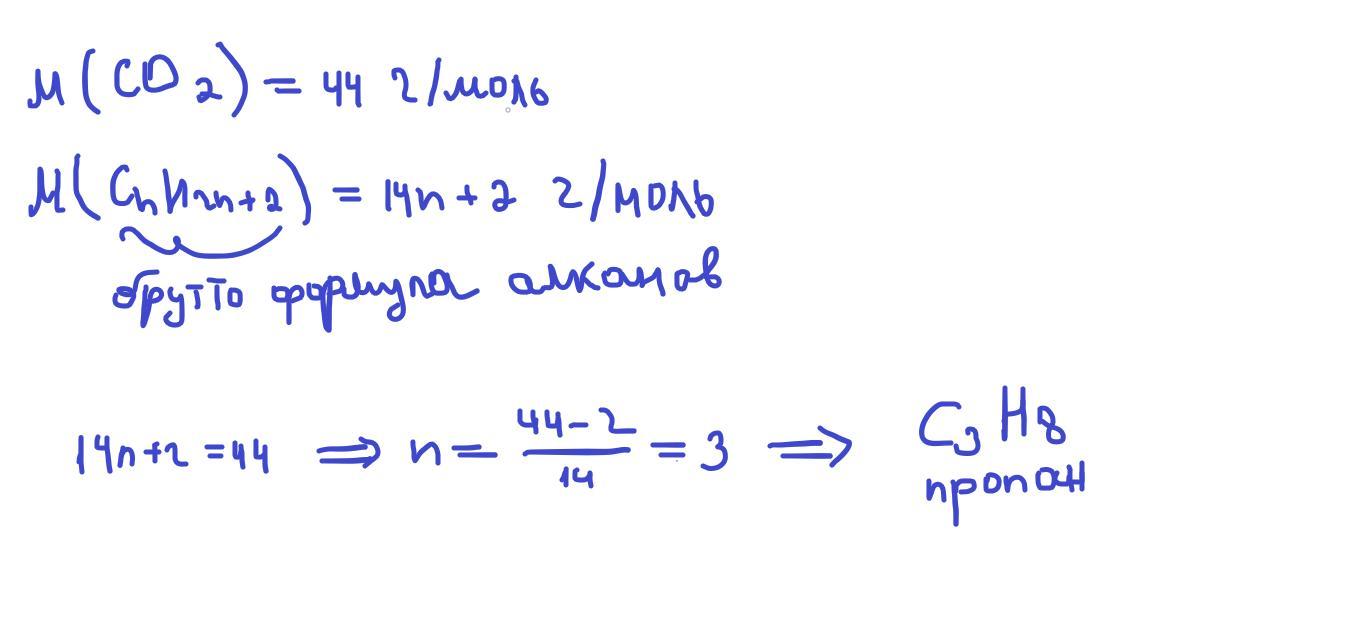 M(CO₂) = 44 г/моль
M(CₙH₂ₙ₊₂) = 14n + 2 г/моль
брутто формула алканов
14n + 2 = 44 ⟹ n = (44 - 2)/14 = 3 ⟹ C₃H₈
пропан